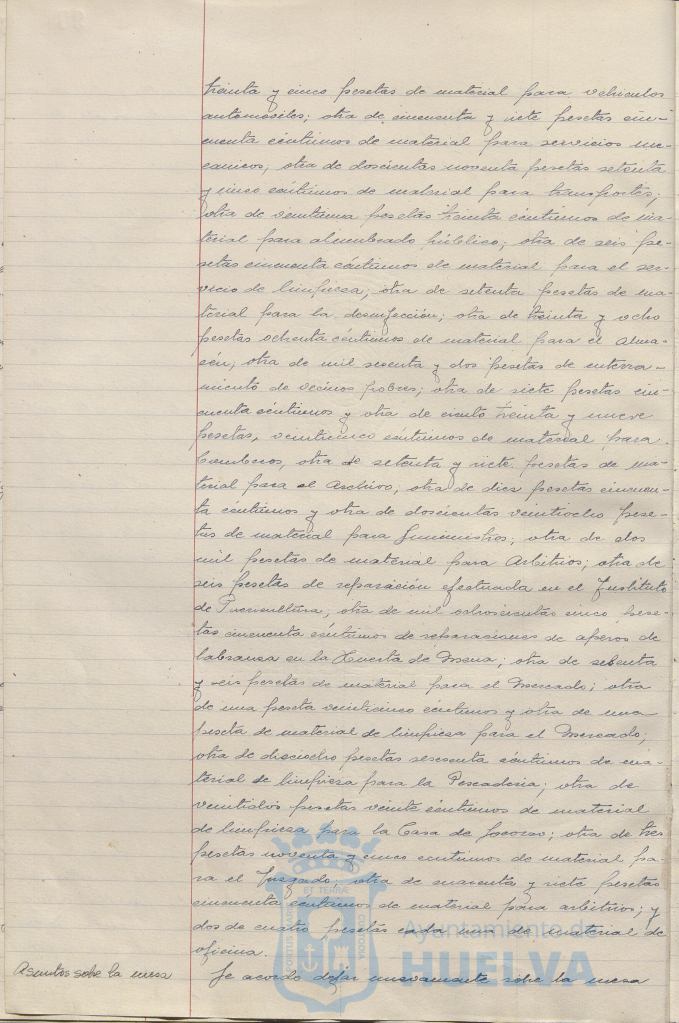 treinta y cinco pesetas de material para vehiculos
automóviles; otra de cincuenta y siete pesetas cin-
cuenta céntimos de material para servicios me-
canicos; otra de doscientas noventa pesetas setenta
y cinco céntimos de material para transportes;
otra de veintiuna pesetas treinta céntimos de ma-
terial para alumbrado público; otra de seis pe-
setas cincuenta céntimos de material para el ser-
vicio de limpieza; otra de setenta pesetas de ma-
terial para la desinfección; otra de treinta y ocho
pesetas ochenta céntimos de material para el alma-
cén; otra de mil sesenta y dos pesetas de enterra-
miento de vecinos pobres; otra de siete pesetas cin-
cuenta céntimos y otra de ciento treinta y nueve
pesetas, veinticinco céntimos de material para
bomberos, otra de setenta y siete pesetas de ma-
terial para el Archivo; otra de diez pesetas cincuen-
ta céntimos y otra de doscientas veintiocho pese-
tas de material para Suministros; otra de dos
mil pesetas de material para Arbitrios; otra de
seis pesetas de reparación efectuada en el Instituto
de Puericultura, otra de mil ochocientas cinco pese-
tas cincuenta céntimos de reparaciones de aperos de
labranza en la Huerta de Mena; otra de setenta
y seis pesetas de material para el Mercado; otra
de una peseta veinticinco céntimos y otra de una
peseta de material de limpieza para el Mercado;
otra de dieciocho pesetas sesenta céntimos de ma-
terial de limpieza para la Pescaderia; otra de
veintidos pesetas veinte céntimos de material
de limpieza para la Casa de Socorro; otra de tres
pesetas noventa y cinco centimos de material pa-
ra el Juzgado; otra de cuarenta y siete pesetas
cincuenta centimos de material para arbitrios; y
dos de cuatro pesetas cada una de material de
oficina.
Asuntos sobre la mesa Se acordó dejar nuevamente sobre la mesa
PORTUS MARIS
ET TERRÆ
CUSTODIA
Ayuntamiento de
HUELVA